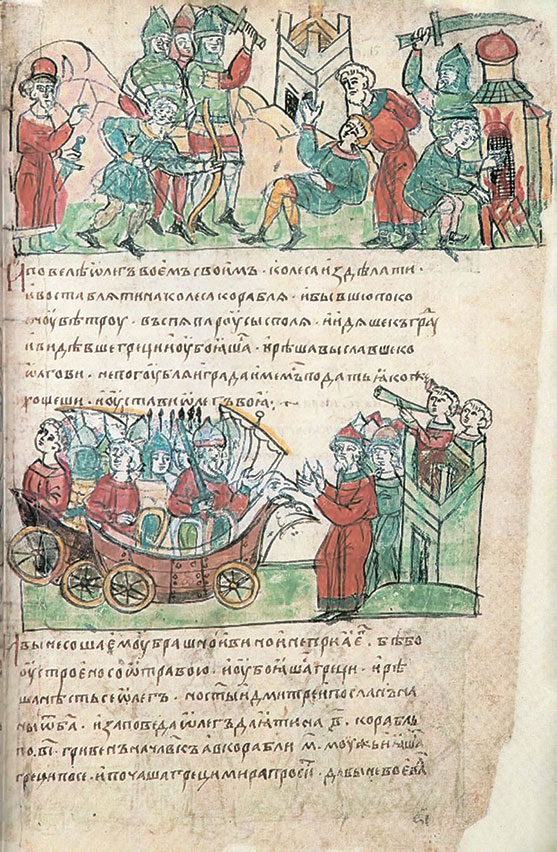 И повелѣ ѡлегъ воемъ своимъ · колеса издѣлати ·
и воставляти на колеса корабля · и бывшю поко
сноу вѣтроу · въспѧ пароусы с поля · и идяше к граⷣ
и видѣвше греци и оубоꙗшаⷭ · и рѣша выславше ко
ѡлгови · не погоублѧи града имемъ подать ꙗко же
хощеши · и оустави ѡлегъ воꙗ ·
и вынесоша емоу брашно и вино и не приꙗ еⷢ · бѣ бо
оустроено со ѡтравою · и оубоꙗша греци · и рѣ
ша нѣсть се ѡлегъ · но стыи дмитреи посланъ на
ны ѿ ба · и заповеда ѡлегъ даꙗти на в҃ · корабль
по · ві · гривенъ на члвкъ а в корабли · м · моужъ и ꙗша
греци по се · и почаша греци мира просиⷮ · дабы не воевал